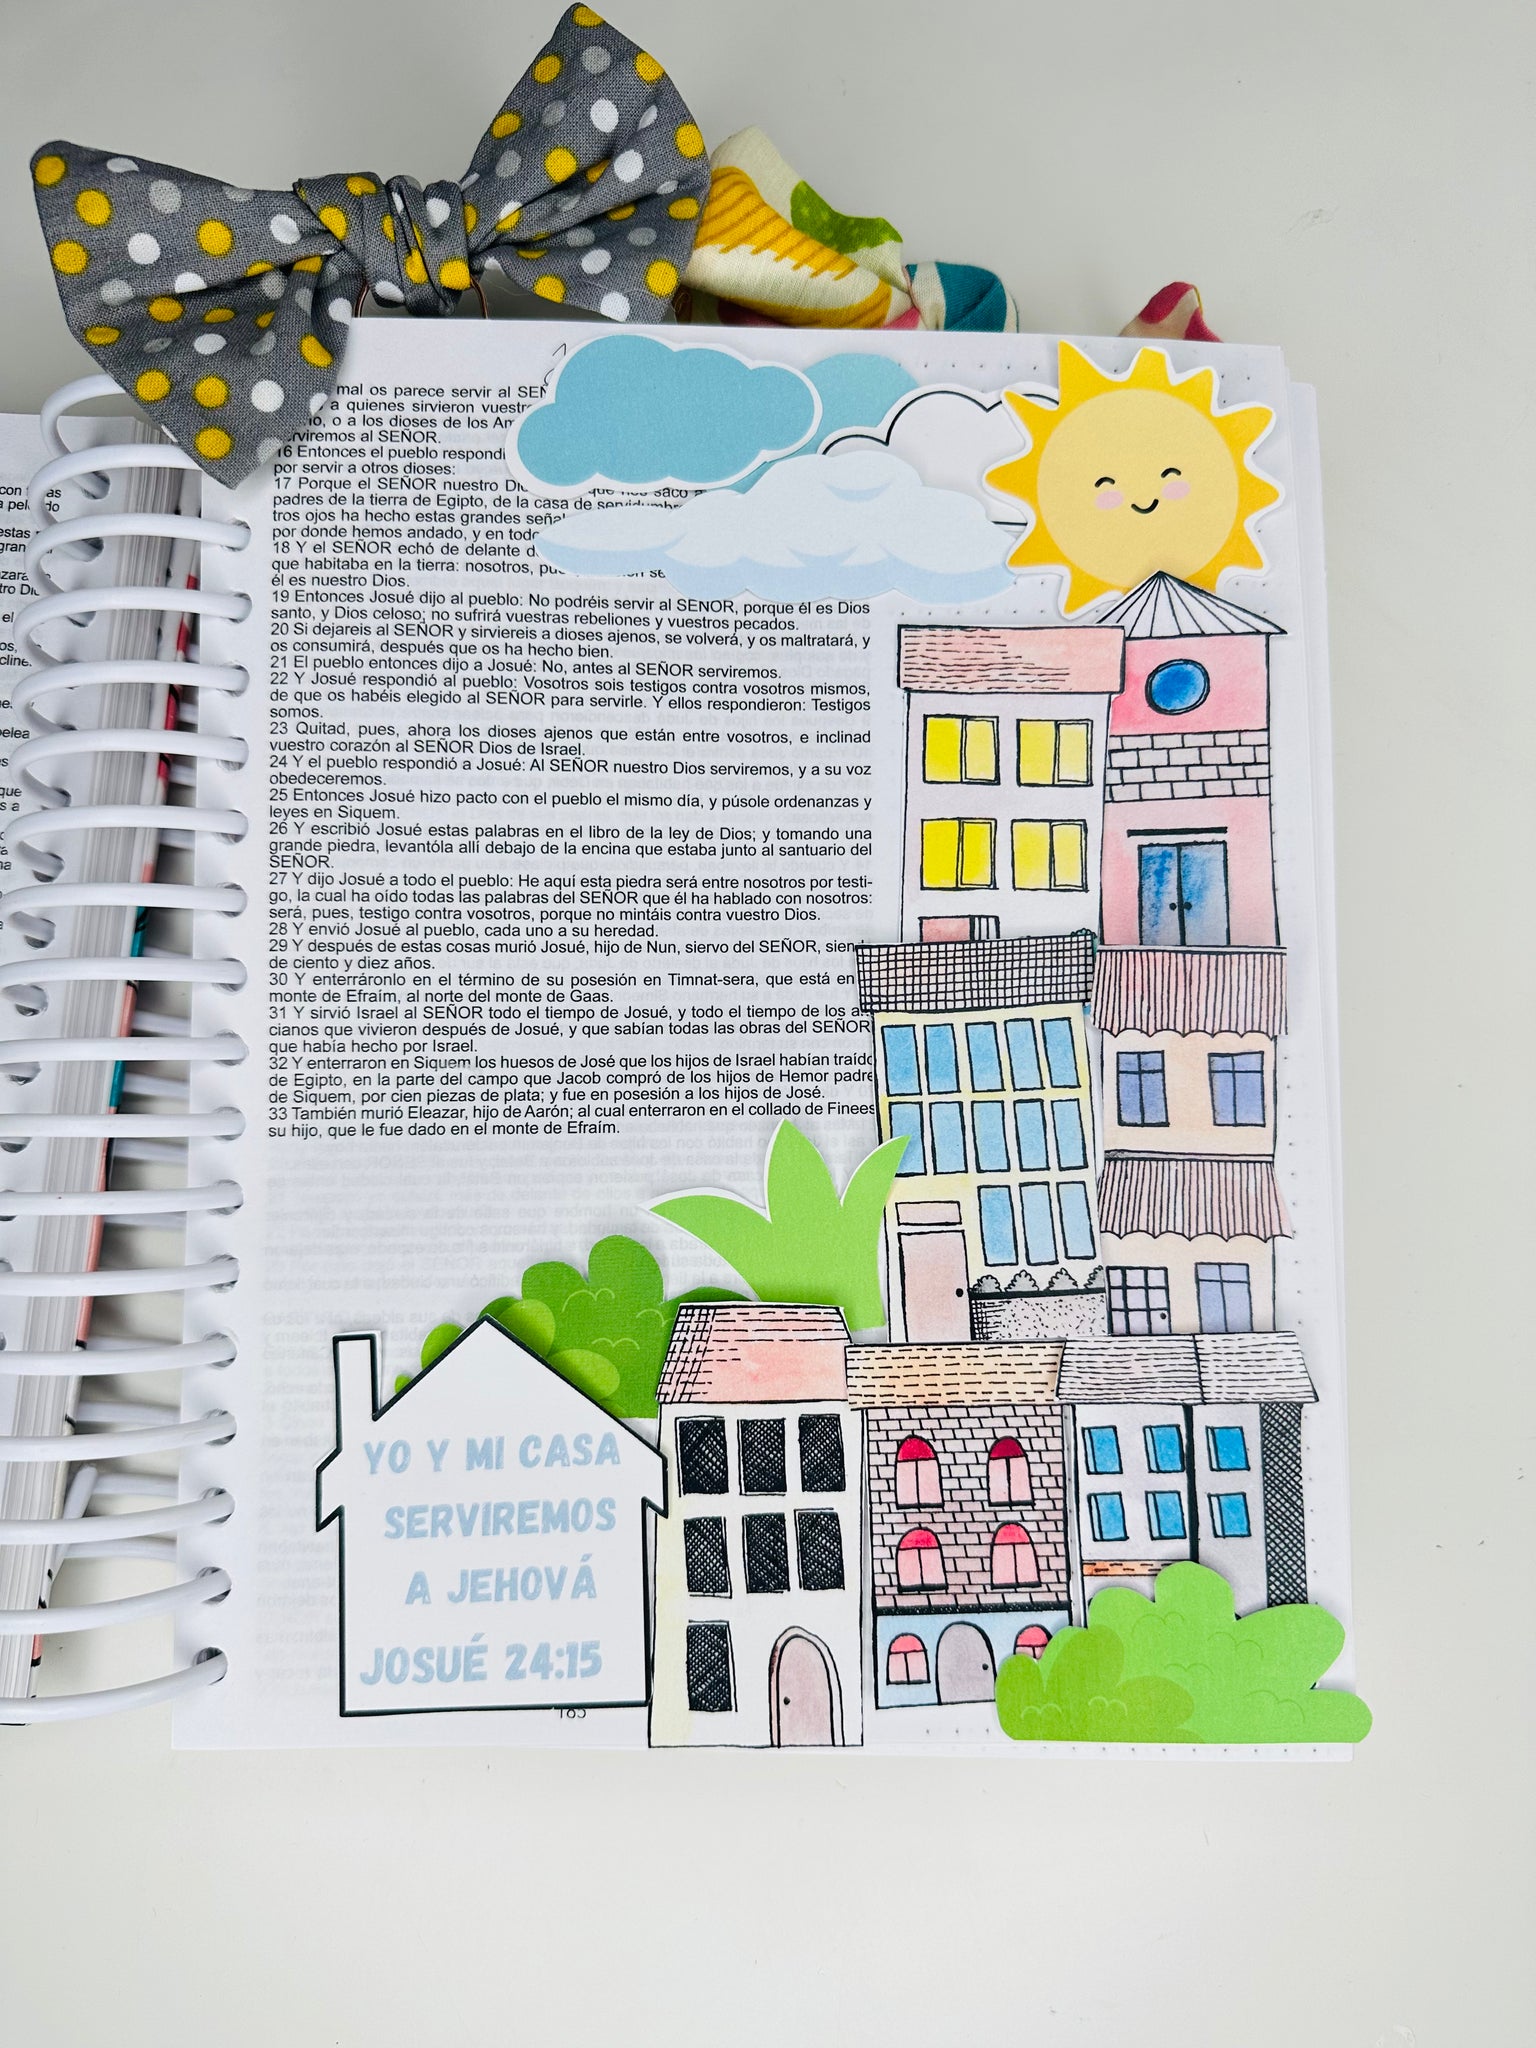 mal os parece servir al SEÑ
a quienes sirvieron vuestr
o, o a los dioses de los Am
serviremos al SEÑOR.
16 Entonces el pueblo respondi
por servir a otros dioses:
17 Porque el SEÑOR nuestro Di
que nos sacó a
padres de la tierra de Egipto, de la casa de servidumbr
tros ojos ha hecho estas grandes seña
por donde hemos andado, y en todo
18 Y el SEÑOR echó de delante d
que habitaba en la tierra: nosotros, pu
él es nuestro Dios.
19 Entonces Josué dijo al pueblo: No podréis servir al SEÑOR, porque él es Dios
santo, y Dios celoso; no sufrirá vuestras rebeliones y vuestros pecados.
20 Si dejareis al SEÑOR y sirviereis a dioses ajenos, se volverá, y os maltratará, y
os consumirá, después que os ha hecho bien.
21 El pueblo entonces dijo a Josué: No, antes al SEÑOR serviremos.
22 Y Josué respondió al pueblo: Vosotros sois testigos contra vosotros mismos,
de que os habéis elegido al SEÑOR para servirle. Y ellos respondieron: Testigos
somos.
23 Quitad, pues, ahora los dioses ajenos que están entre vosotros, e inclinad
vuestro corazón al SEÑOR Dios de Israel.
24 Y el pueblo respondió a Josué: Al SEÑOR nuestro Dios serviremos, y a su voz
obedeceremos.
25 Entonces Josué hizo pacto con el pueblo el mismo día, y púsole ordenanzas y
leyes en Siquem.
26 Y escribió Josué estas palabras en el libro de la ley de Dios; y tomando una
grande piedra, levantóla allí debajo de la encina que estaba junto al santuario del
SEÑOR.
27 Y dijo Josué a todo el pueblo: He aquí esta piedra será entre nosotros por testi-
go, la cual ha oído todas las palabras del SEÑOR que él ha hablado con nosotros:
será, pues, testigo contra vosotros, porque no mintáis contra vuestro Dios.
28 Y envió Josué al pueblo, cada uno a su heredad.
29 Y después de estas cosas murió Josué, hijo de Nun, siervo del SEÑOR, siend
de ciento y diez años.
30 Y enterráronlo en el término de su posesión en Timnat-sera, que está en
monte de Efraím, al norte del monte de Gaas.
31 Y sirvió Israel al SEÑOR todo el tiempo de Josué, y todo el tiempo de los an
cianos que vivieron después de Josué, y que sabían todas las obras del SEÑOR
que había hecho por Israel.
32 Y enterraron en Siquem los huesos de José que los hijos de Israel habían traído
de Egipto, en la parte del campo que Jacob compró de los hijos de Hemor padre
de Siquem, por cien piezas de plata; y fue en posesión a los hijos de José.
33 También murió Eleazar, hijo de Aarón; al cual enterraron en el collado de Finees
su hijo, que le fue dado en el monte de Efraím.
YO Y MI CASA
SERVIREMOS
A JEHOVÁ
JOSUÉ 24:15